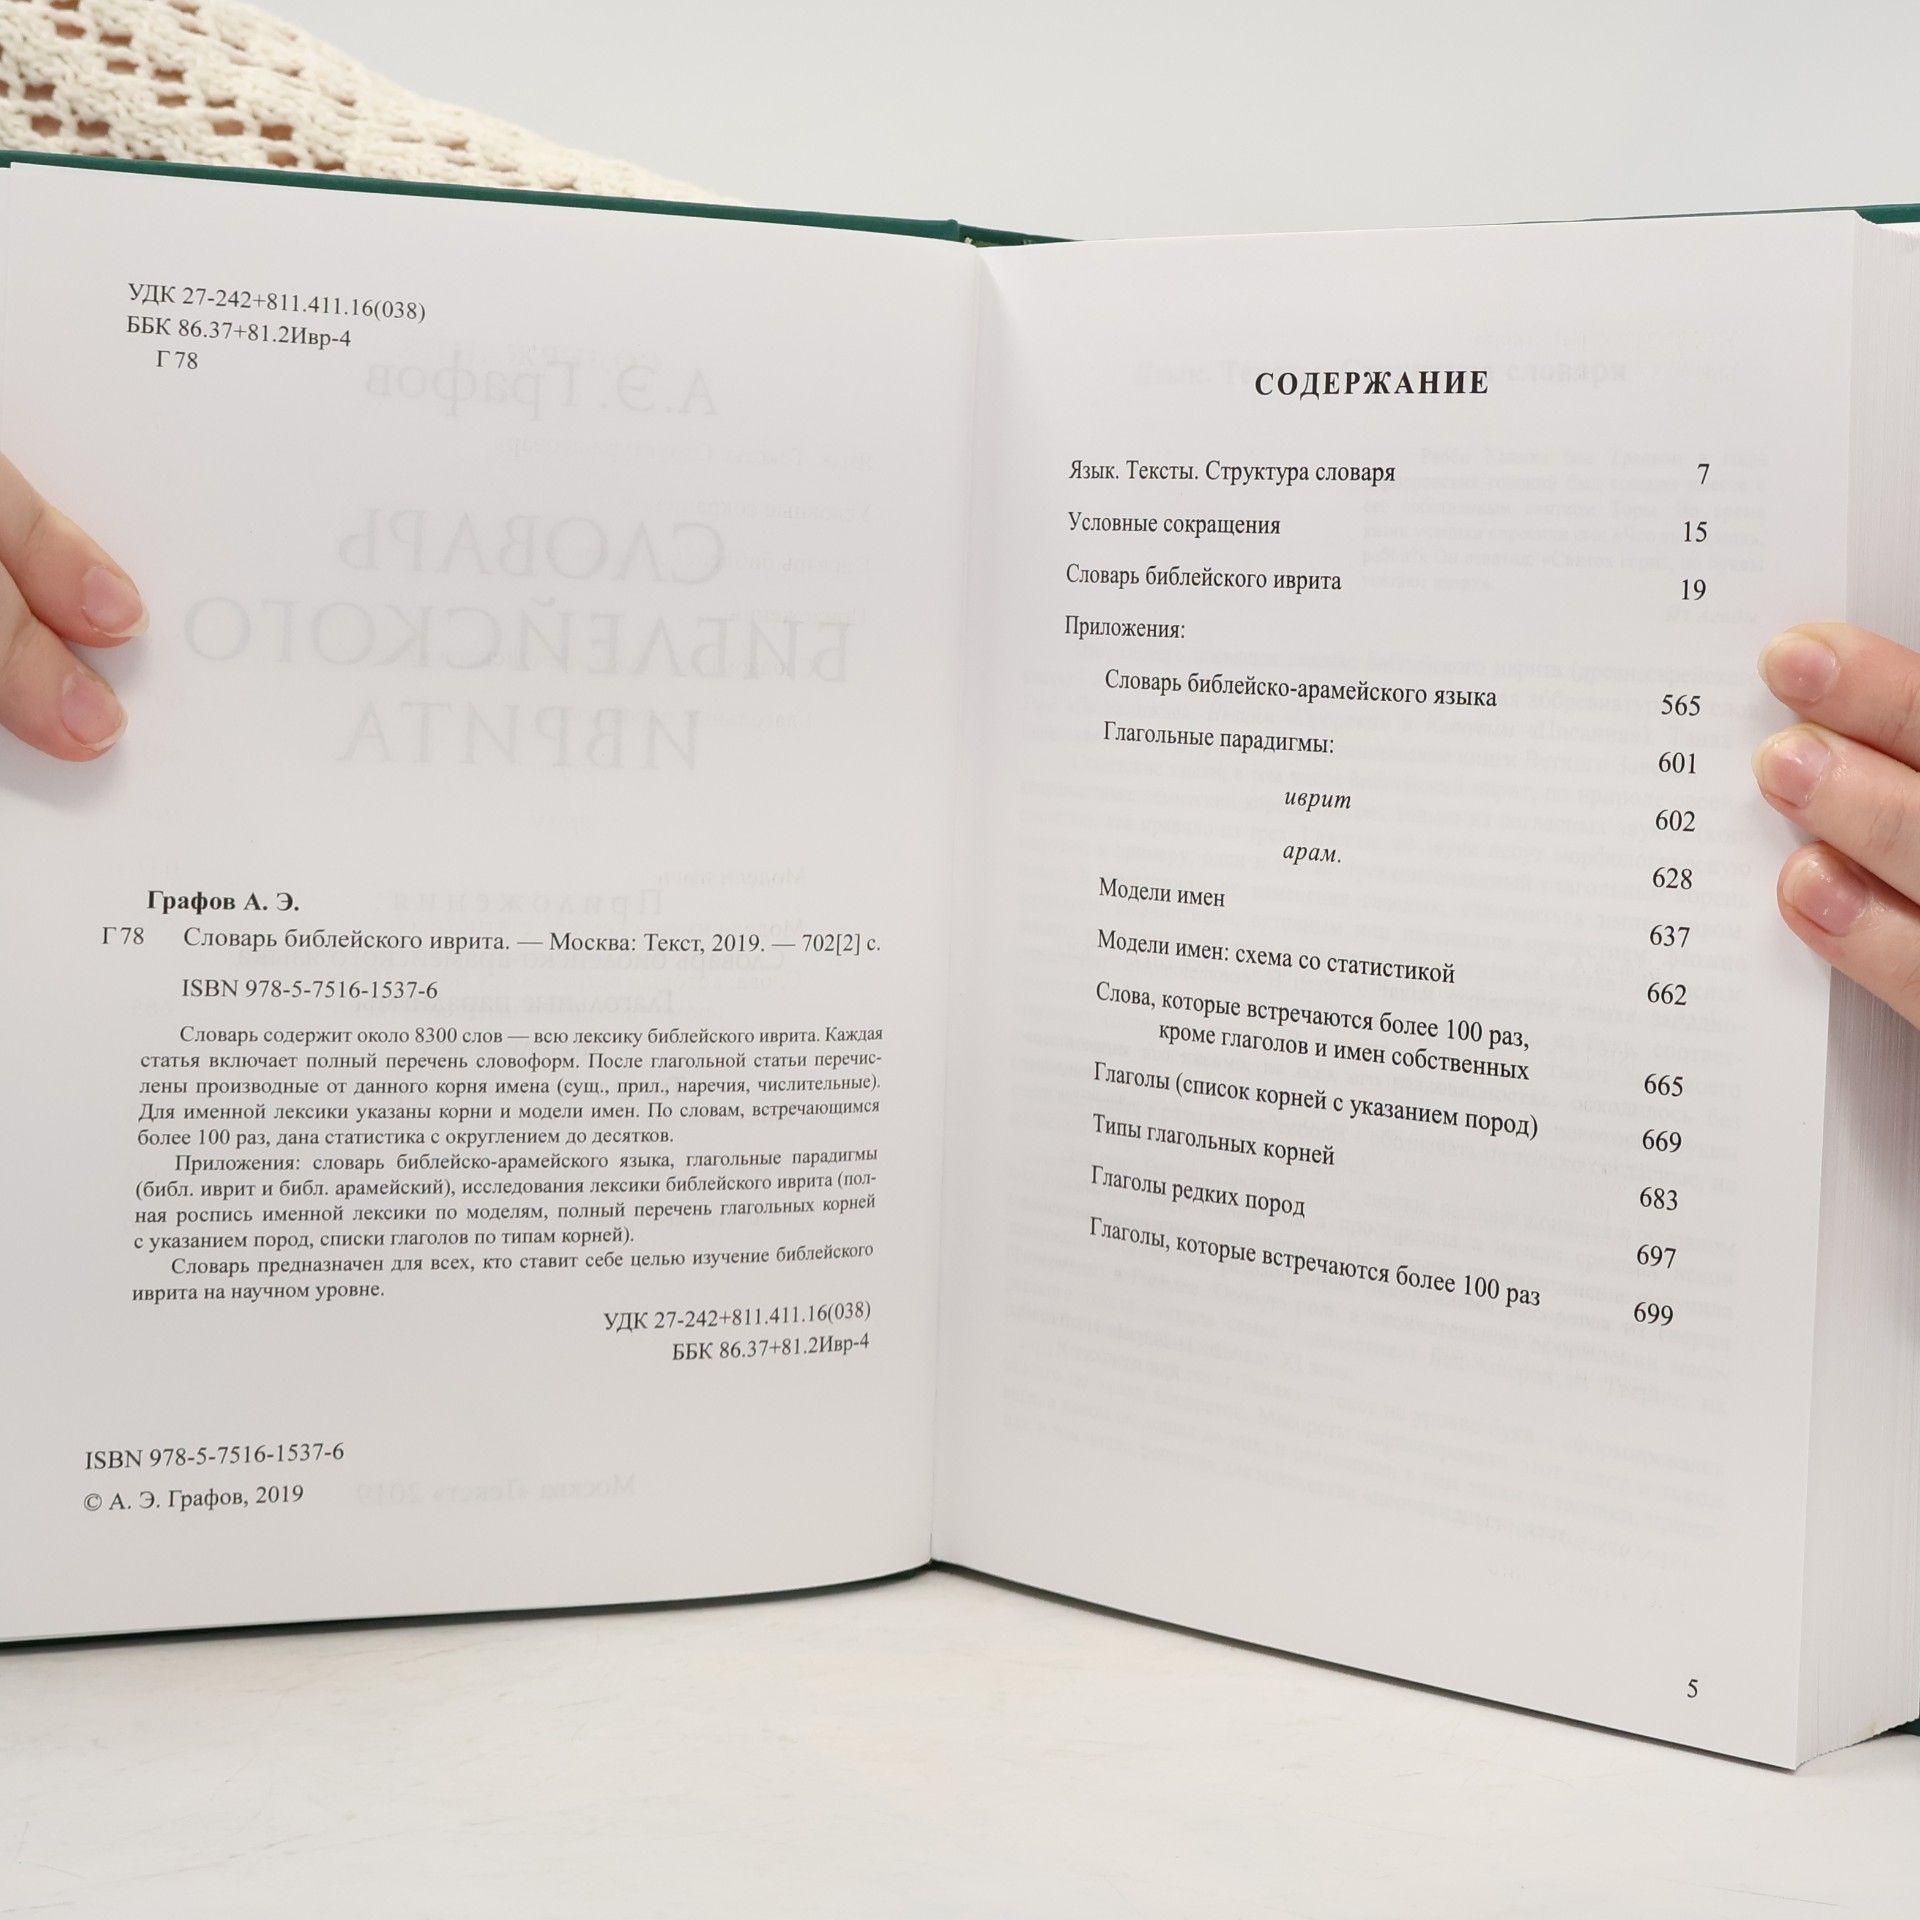 УДК 27-242+811.411.16(038)
ББК 86.37+81.2Ивр-4
Г 78
Графов А. Э.
Г 78 Словарь библейского иврита. — Москва: Текст, 2019. — 702[2] с.
ISBN 978-5-7516-1537-6
Словарь содержит около 8300 слов — всю лексику библейского иврита. Каждая
статья включает полный перечень словоформ. После глагольной статьи перечис-
лены производные от данного корня имена (сущ., прил., наречия, числительные).
Для именной лексики указаны корни и модели имен. По словам, встречающимся
более 100 раз, дана статистика с округлением до десятков.
Приложения: словарь библейско-арамейского языка, глагольные парадигмы
(библ. иврит и библ. арамейский), исследования лексики библейского иврита (пол-
ная роспись именной лексики по моделям, полный перечень глагольных корней
с указанием пород, списки глаголов по типам корней).
Словарь предназначен для всех, кто ставит себе целью изучение библейского
иврита на научном уровне.
УДК 27-242+811.411.16(038)
ББК 86.37+81.2Ивр-4
ISBN 978-5-7516-1537-6
© А. Э. Графов, 2019
СОДЕРЖАНИЕ
Язык. Тексты. Структура словаря 7
Условные сокращения 15
Словарь библейского иврита 19
Приложения:
Словарь библейско-арамейского языка 565
Глагольные парадигмы: 601
иврит 602
арам. 628
Модели имен 637
Модели имен: схема со статистикой 662
Слова, которые встречаются более 100 раз,
кроме глаголов и имен собственных 665
Глаголы (список корней с указанием пород) 669
Типы глагольных корней 683
Глаголы редких пород 697
Глаголы, которые встречаются более 100 раз 699
5